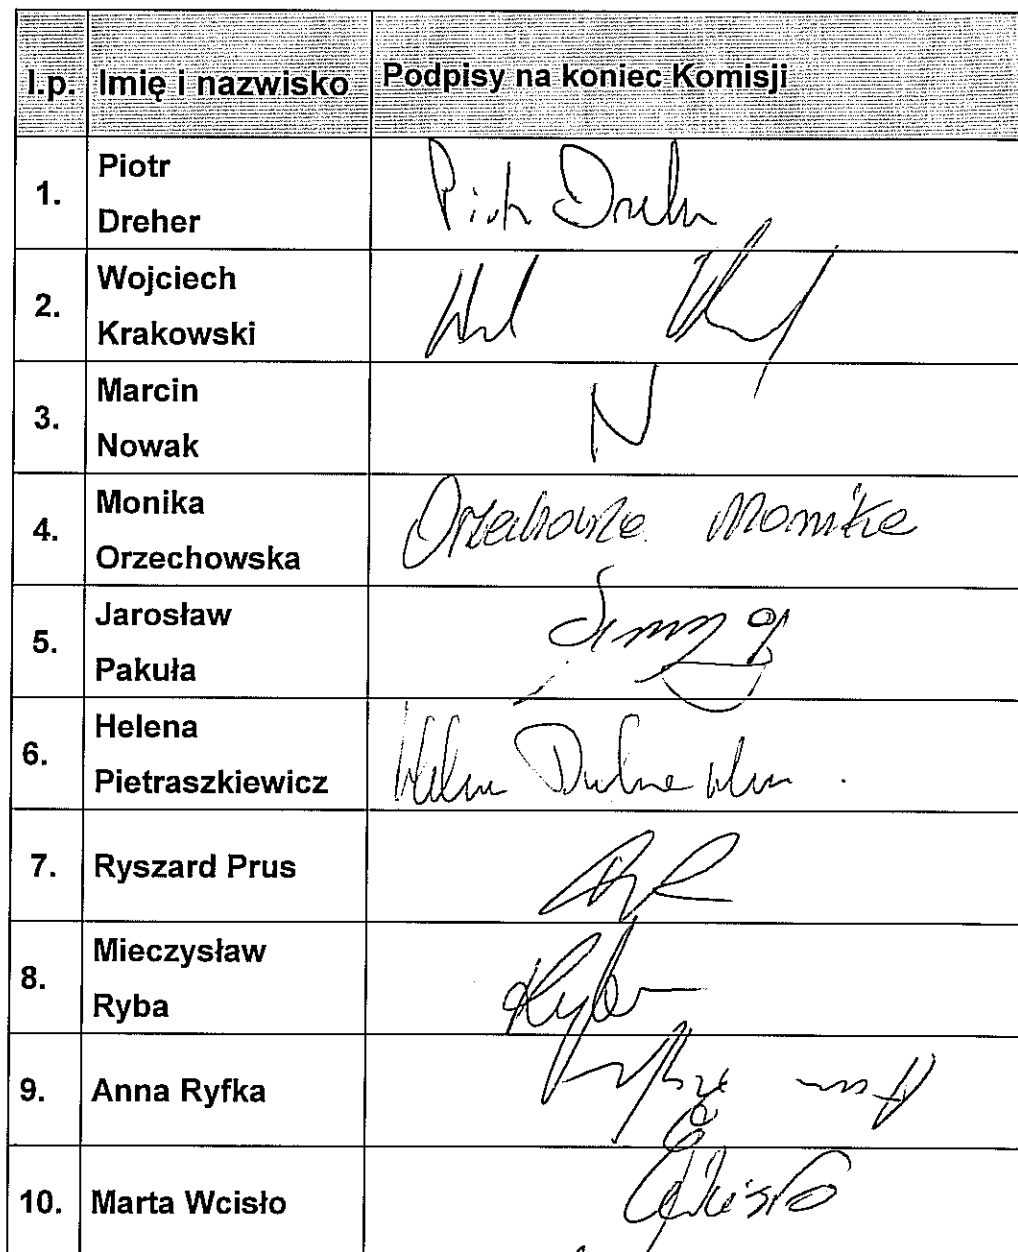 l.p. Imię i nazwisko Podpisy na koniec Komisji
1. Piotr Dreher Piotr Dreher
2. Wojciech Krakowski
3. Marcin Nowak N
4. Monika Orzechowska Orzechowska Monika
5. Jarosław Pakuła
6. Helena Pietraszkiewicz
7. Ryszard Prus
8. Mieczysław Ryba Ryba
9. Anna Ryfka
10. Marta Wcisło Wcisło